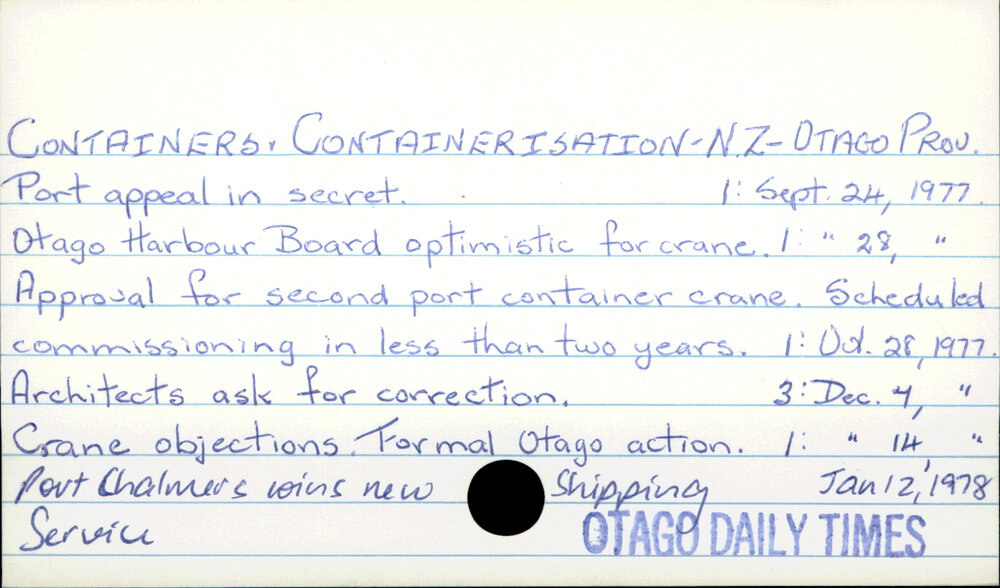 CONTAINERS. CONTAINERISATION-N.Z-OTAGO PROV.
Port appeal in secret. 1: Sept. 24, 1977.
Otago Harbour Board optimistic for crane. 1: " 28, "
Approval for second port container crane. Scheduled
commissioning in less than two years. 1: Oct. 28, 1977.
Architects ask for correction. 3: Dec. 7, "
Crane objections. Formal Otago action. 1: " 14, "
Port Chalmers wins new Shipping Jan 12, 1978
Service
OTAGO DAILY TIMES